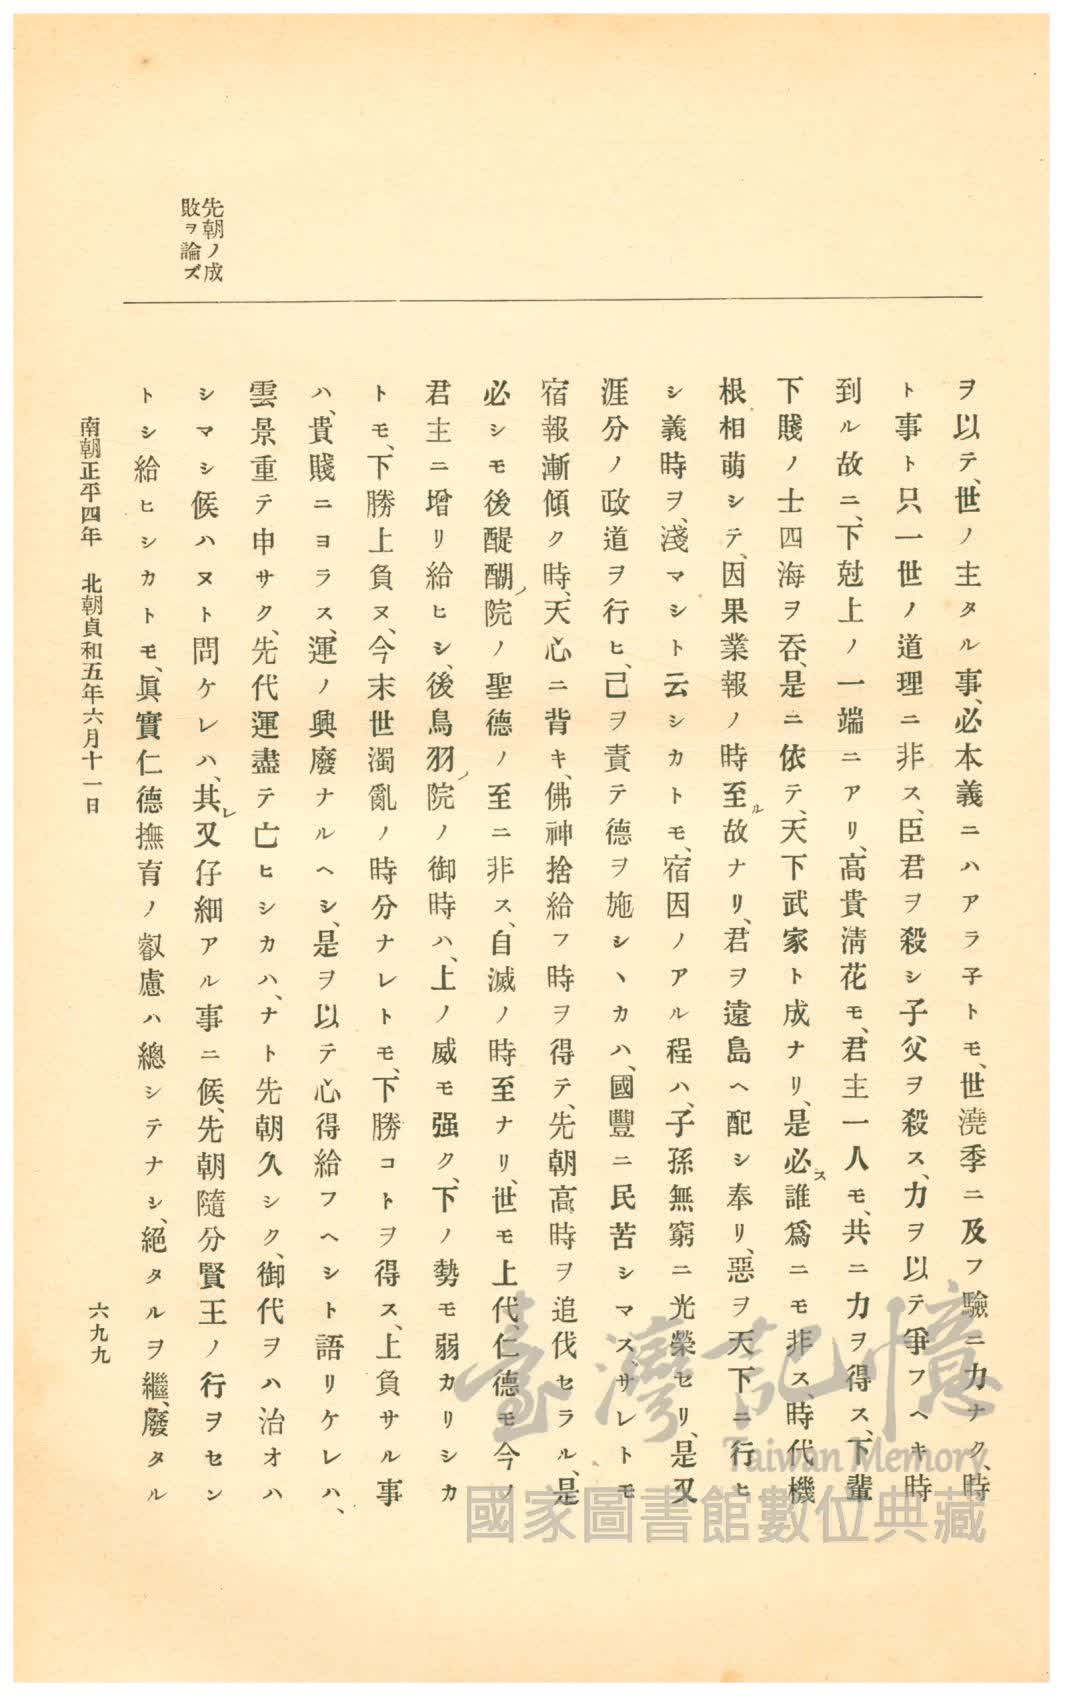 先朝ノ成
敗ヲ論ズ
ヲ以テ、世ノ主タル事、必本義ニハアラ子トモ、世澆季ニ及フ驗ニ力ナク、時
ト事ト只一世ノ道理ニ非ス、臣君ヲ殺シ子父ヲ殺ス、力ヲ以テ爭フヘキ時
到ル故ニ、下尅上ノ一端ニアリ、高貴淸花モ、君主一人モ、共ニ力ヲ得ス、下輩
下賤ノ士四海ヲ呑、是ニ依テ、天下武家ト成ナリ、是必ス誰爲ニモ非ス、時代機
根相萌シテ、因果業報ノ時至ル故ナリ、君ヲ遠島ヘ配シ奉リ、惡ヲ天下ニ行ヒ
シ義時ヲ、淺マシト云シカトモ、宿因ノアル程ハ、子孫無窮ニ光榮セリ、是又
涯分ノ政道ヲ行ヒ、己ヲ責テ德ヲ施シヽカハ、國豐ニ民苦シマス、サレトモ
宿報漸傾ク時、天心ニ背キ、佛神捨給フ時ヲ得テ、先朝高時ヲ追伐セラル、是
必シモ後醍醐ノ院ノ聖德ノ至ニ非ス、自滅ノ時至ナリ、世モ上代、仁德モ今ノ
君主ニ增リ給ヒシ、後鳥羽ノ院ノ御時ハ、上ノ威モ强ク、下ノ勢モ弱カリシカ
トモ、下勝上負ヌ、今末世濁亂ノ時分ナレトモ、下勝コトヲ得ス、上負サル事
ハ、貴賤ニヨラス、運ノ興廢ナルヘシ、是ヲ以テ心得給フヘシト語リケレハ、
雲景重テ申サク、先代運盡テ亡ヒシカハ、ナト先朝久シク、御代ヲハ治オハ
シマシ候ハヌト問ケレハ、其レ又仔細アル事ニ候、先朝隨分賢王ノ行ヲセン
トシ給ヒシカトモ、眞實仁德撫育ノ叡慮ハ總シテナシ、絕タルヲ繼、廢タル
南朝正平四年　北朝貞和五年六月十一日
六九九
臺灣記憶
Taiwan Memory
國家圖書館數位典藏